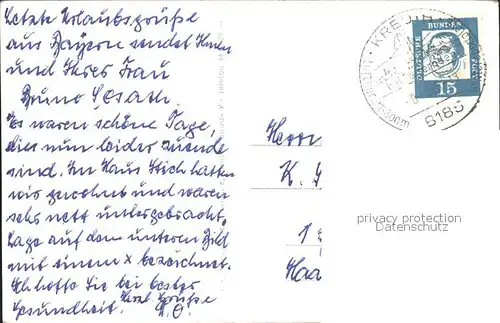 Letzte Urlaubsgrüße
aus Bayern sendet Ihnen
und Ihrer Frau
Bruno
Es waren schöne Tage,
dies nun leider zuende
sind. Im Haus hatten
wir gewohnt und waren
sehr nett untergebracht,
Lage auf dem unteren Bild
mit einem x bezeichnet.
Ich hoffe Sie bei bester
Gesundheit. Herzl. Grüße
Herrn
K.
1
Haa
DEUTSCHE
BUNDESPOST
15
KREUTH
8185
privacy protection
Datenschutz